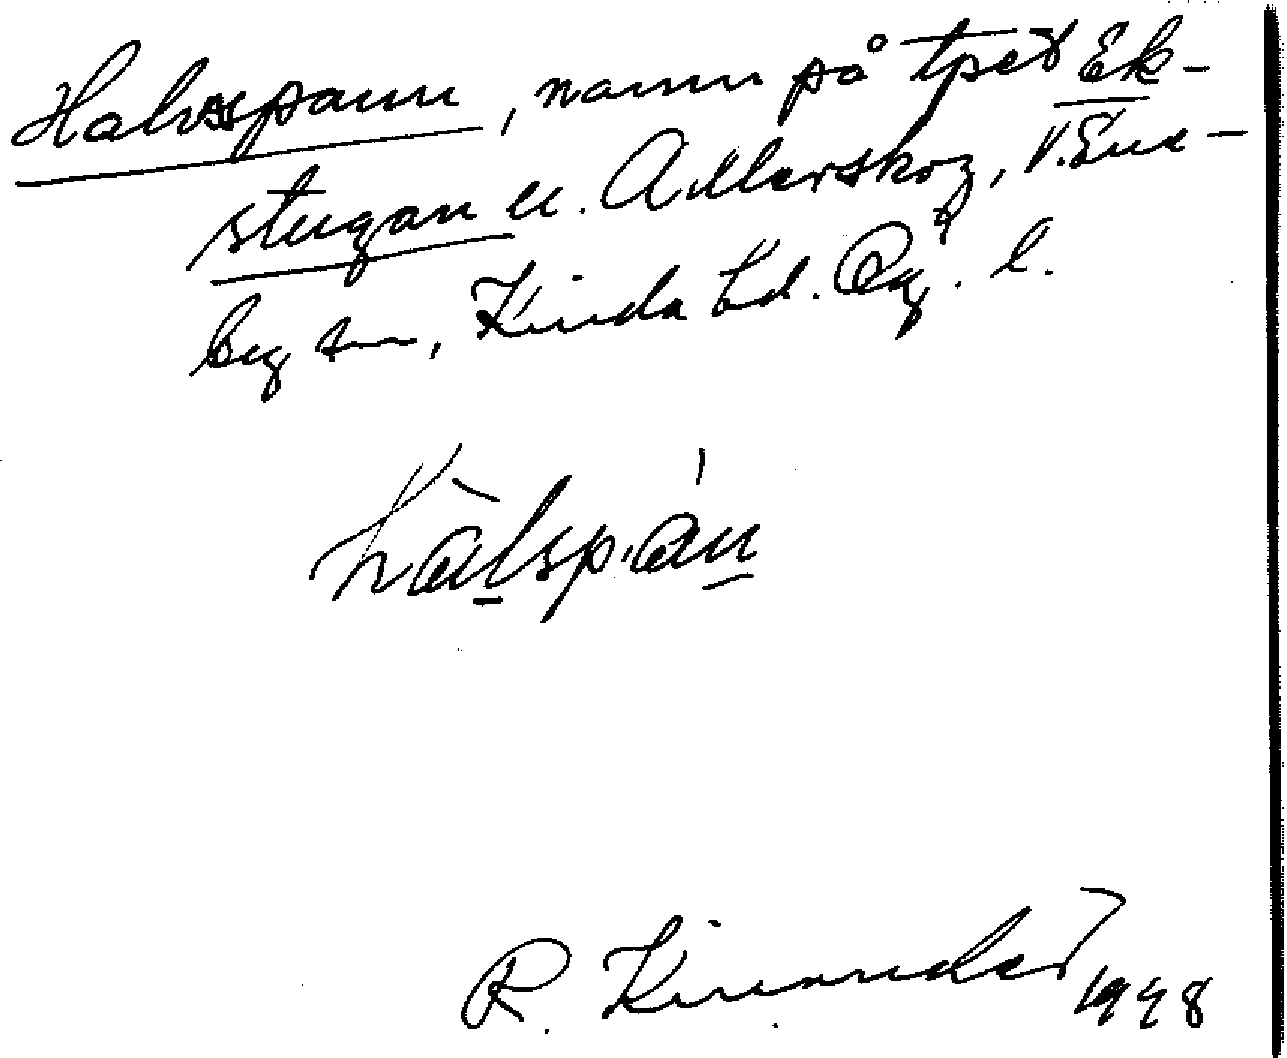 Halvspann, namn på tpet Ek-
stugan u. Adlerskog, V. Ene-
by sn, Kinda hd. Ög. l.
hàlspán
R. Kinander
1948